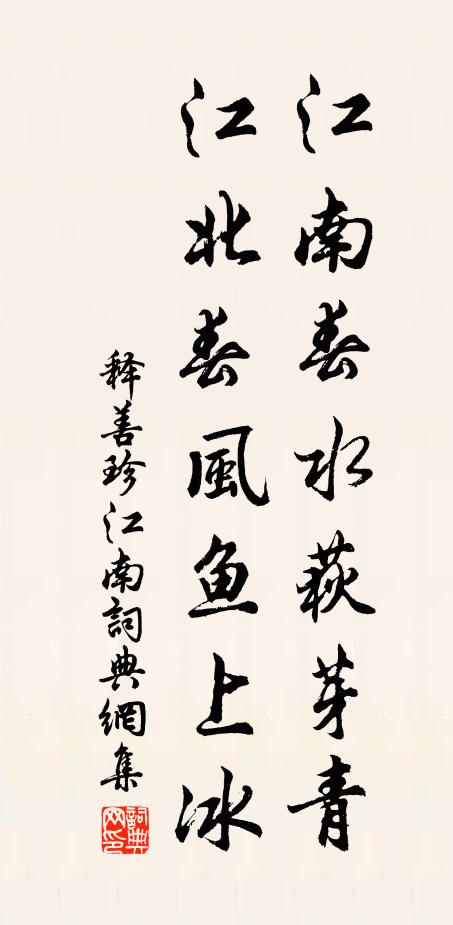 江南春水荻芽青
江北春風魚上冰
释善珍江南詞典網集
詞典網印